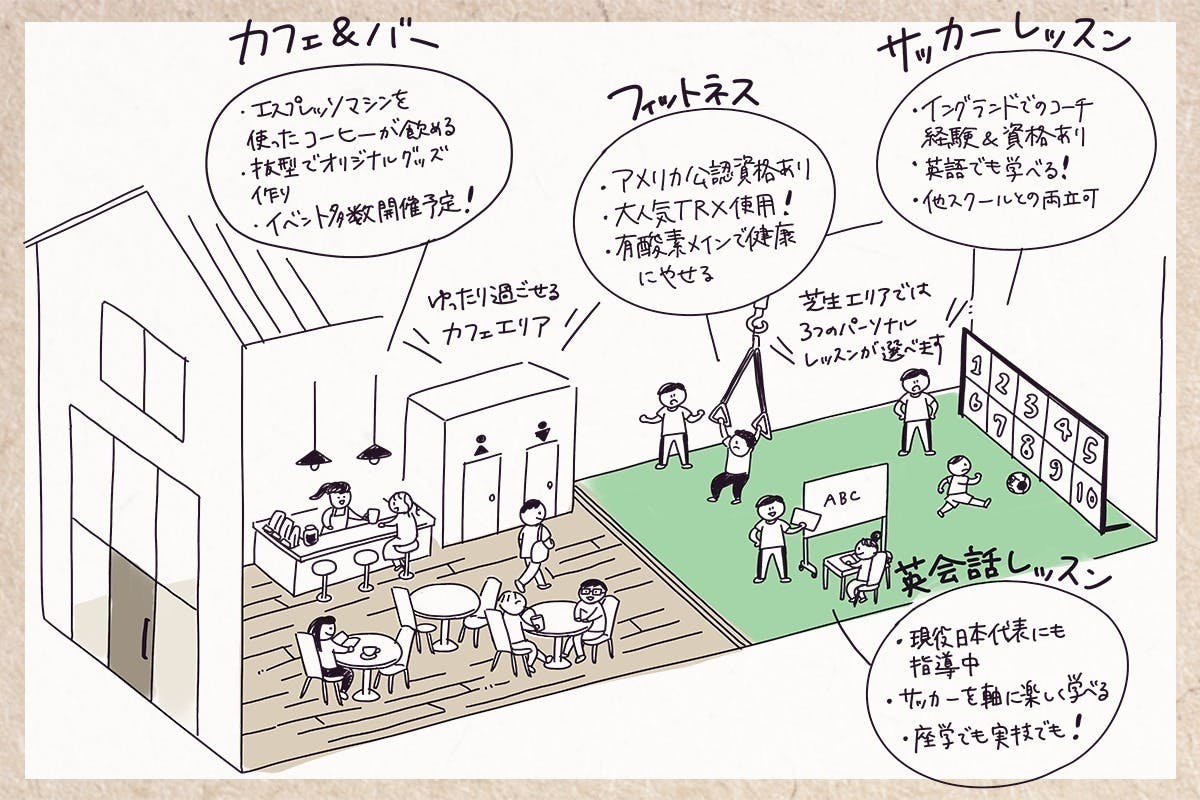 カフェ&バー
・エスプレッソマシンを
使ったコーヒーが飲める
・抜型でオリジナルグッズ
作り
・イベント多数開催予定!
フィットネス
・アメリカ公認資格あり
・大人気TRX使用!
・有酸素メインで健康
にやせる
サッカーレッスン
・イングランドでのコーチ
経験&資格あり
・英語でも学べる!
・他スクールとの両立可
ゆったり過ごせる
カフェエリア
芝生エリアでは
3つのパーソナル
レッスンが選べます
1 2 3 4 5
6 7 8 9 10
ABC
英会話レッスン
・現役日本代表にも
指導中
・サッカーを軸に楽しく学べる
・座学でも実技でも!